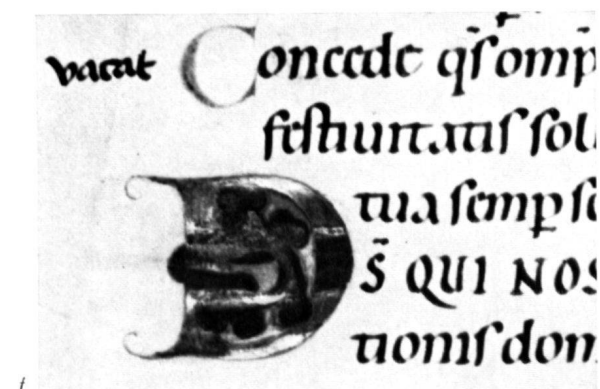 vacat Concede qs̄ omp̄
festiuitatis sol
tua semp̱ se
DS̄ QUI NOS
tionis dom
f